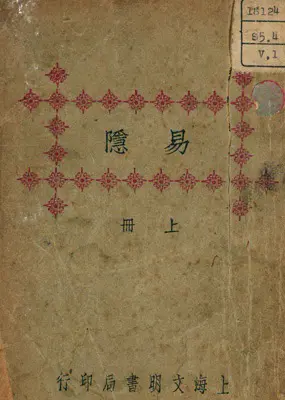 IB124
85.4
V.1
易隱
上冊
上海文明書局印行